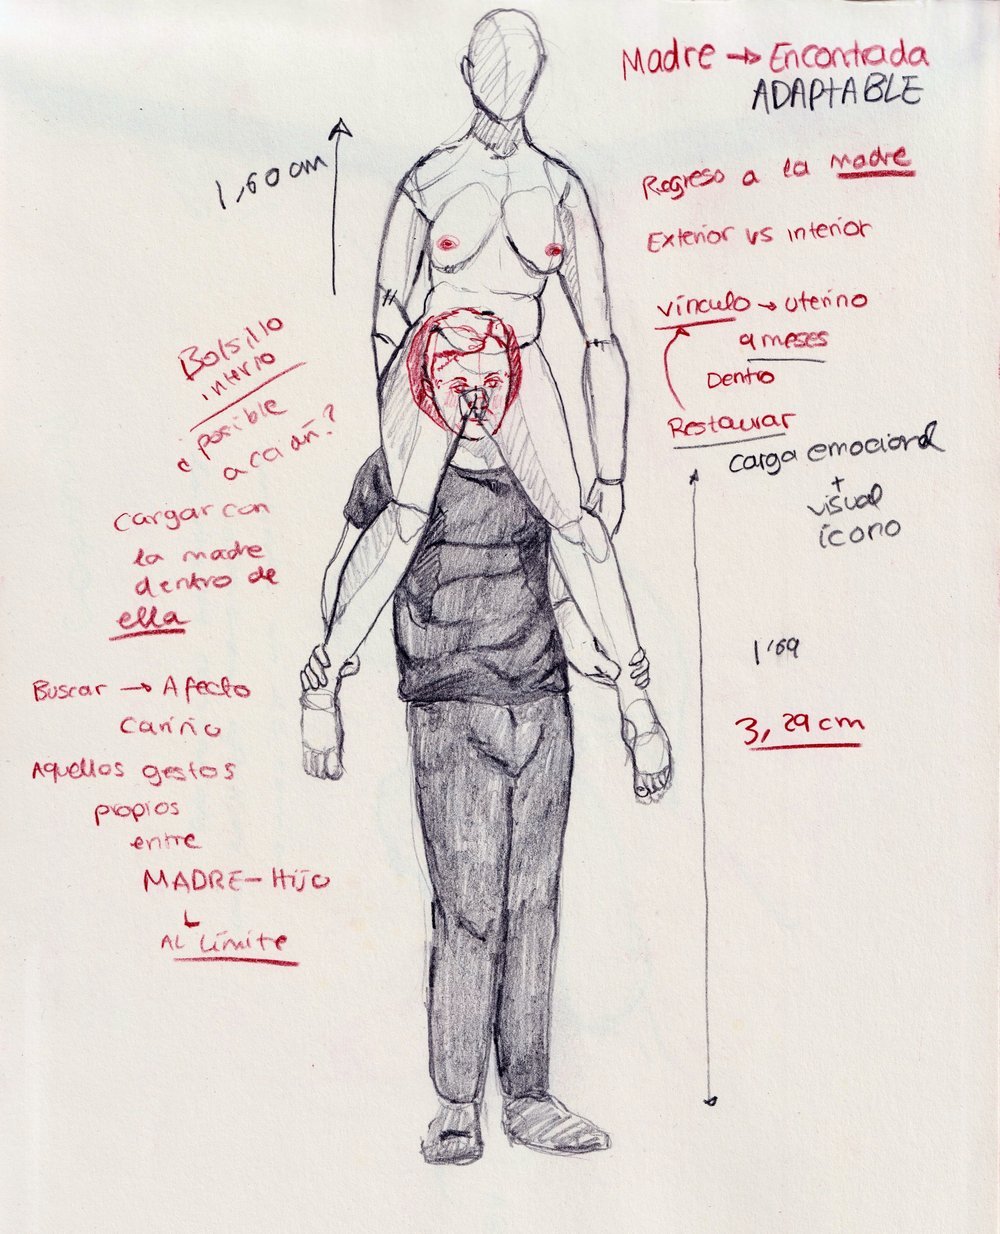 Madre → Encontrada
ADAPTABLE
1,60 cm
Regreso a la madre
Exterior vs interior
vínculo → uterino
9 meses
Dentro
Restaurar
carga emocional
+
visual
ícono
1'69
3,29 cm
Bolsillo
interio
¿posible
cargar con
la madre
dentro de
ella
Buscar → Afecto
cariño
Aquellos gestos
propios
entre
MADRE-HIJO
AL Límite